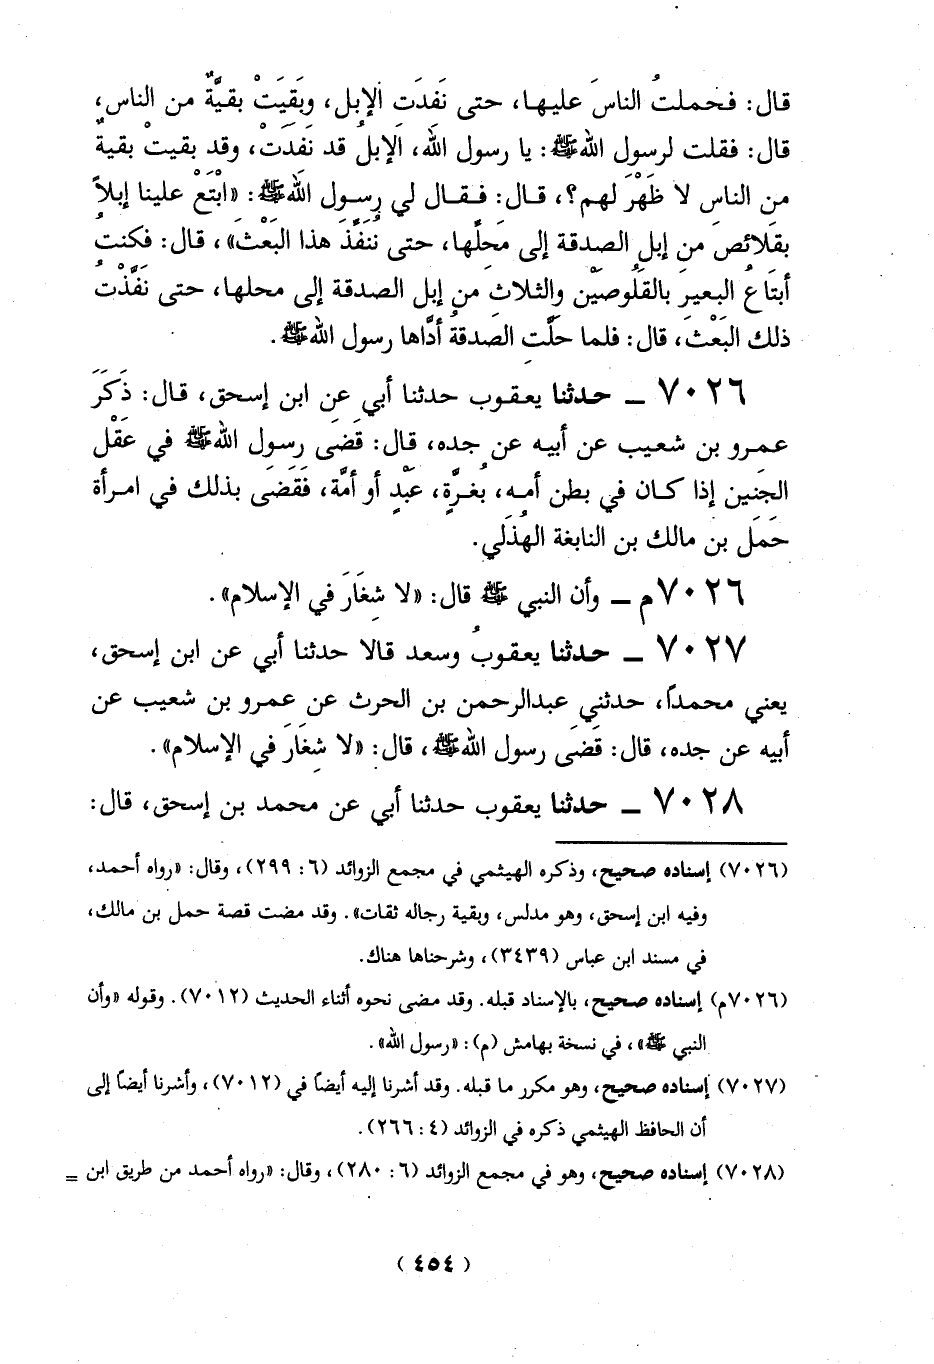 قال: فحملتُ الناسَ عليها، حتى نَفِدَتِ الإبل، وبَقِيَتْ بقيَّةٌ من الناس،
قال: فقلت لرسول الله ﷺ: يا رسول الله، الإبلُ قد نَفِدَتْ، وقد بقيتْ بقيةٌ
من الناس لا ظَهْرَ لهم؟، قال: فقال لي رسول الله ﷺ: «ابْتَعْ علينا إبلاً
بقَلائصَ من إبل الصدقة إلى مَحِلِّها، حتى نُنَفِّذَ هذا البَعْثَ»، قال: فكنتُ
أبتَاعُ البعيرَ بالقَلُوصَيْنِ والثلاثِ من إبل الصدقة إلى محلها، حتى نَفَّذْتُ
ذلك البَعْثَ، قال: فلما حلَّتِ الصدقةُ أدَّاها رسول الله ﷺ.
٧٠٢٦ ـ حدثنا يعقوب حدثنا أبي عن ابن إسحق، قال: ذَكَرَ
عمرو بن شعيب عن أبيه عن جده، قال: قَضَى رسول الله ﷺ في عَقْل
الجَنين إذا كان في بطن أمه، بغُرَّةٍ، عَبْدٍ أو أمَّة، فَقَضَى بذلك في امرأة
حَمَل بن مالك بن النابغة الهُذَلي.
٧٠٢٦م ـ وأن النبي ﷺ قال: «لا شِغَارَ في الإسلام».
٧٠٢٧ ـ حدثنا يعقوبُ وسعد قالا حدثنا أبي عن ابن إسحق،
يعني محمداً، حدثني عبدالرحمن بن الحرث عن عمرو بن شعيب عن
أبيه عن جده، قال: قَضَى رسول الله ﷺ، قال: «لا شِغَارَ في الإسلام».
٧٠٢٨ ـ حدثنا يعقوب حدثنا أبي عن محمد بن إسحق، قال:
(٧٠٢٦) إسناده صحيح، وذكره الهيثمي في مجمع الزوائد (٦: ٢٩٩)، وقال: «رواه أحمد،
وفيه ابن إسحق، وهو مدلس، وبقية رجاله ثقات». وقد مضت قصة حمل بن مالك،
في مسند ابن عباس (٣٤٣٩)، وشرحناها هناك.
(٧٠٢٦م) إسناده صحيح، بالإسناد قبله. وقد مضى نحوه أثناء الحديث (٧٠١٢). وقوله «وأن
النبي ﷺ»، في نسخة بهامش (م): «رسول الله».
(٧٠٢٧) إسناده صحيح، وهو مكرر ما قبله. وقد أشرنا إليه أيضاً في (٧٠١٢)، وأشرنا أيضاً إلى
أن الحافظ الهيثمي ذكره في الزوائد (٤: ٢٦٦).
(٧٠٢٨) إسناده صحيح، وهو في مجمع الزوائد (٦: ٢٨٠)، وقال: «رواه أحمد من طريق ابن =
(٤٥٤)